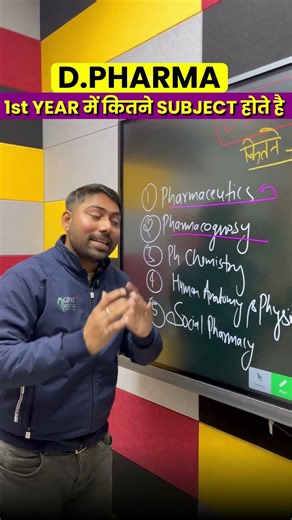 D.PHARMA
1st YEAR में कितने SUBJECT होते है
कितने
① Pharmaceutics
② Pharmacognosy
③ Ph Chemistry
④ Human Anatomy & Physi
⑤ Social Pharmacy